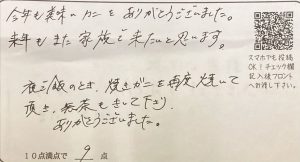 今年も美味いカニをありがとうございました。
来年もまた家族で来たいと思います。
夜ご飯のとき、焼きガニを再度焼いて
頂き、無茶もきいて下さり
ありがとうございました。
10点満点で 9 点
スマホでも投稿
OK！チェック欄
記入後フロント
へお渡し下さい。